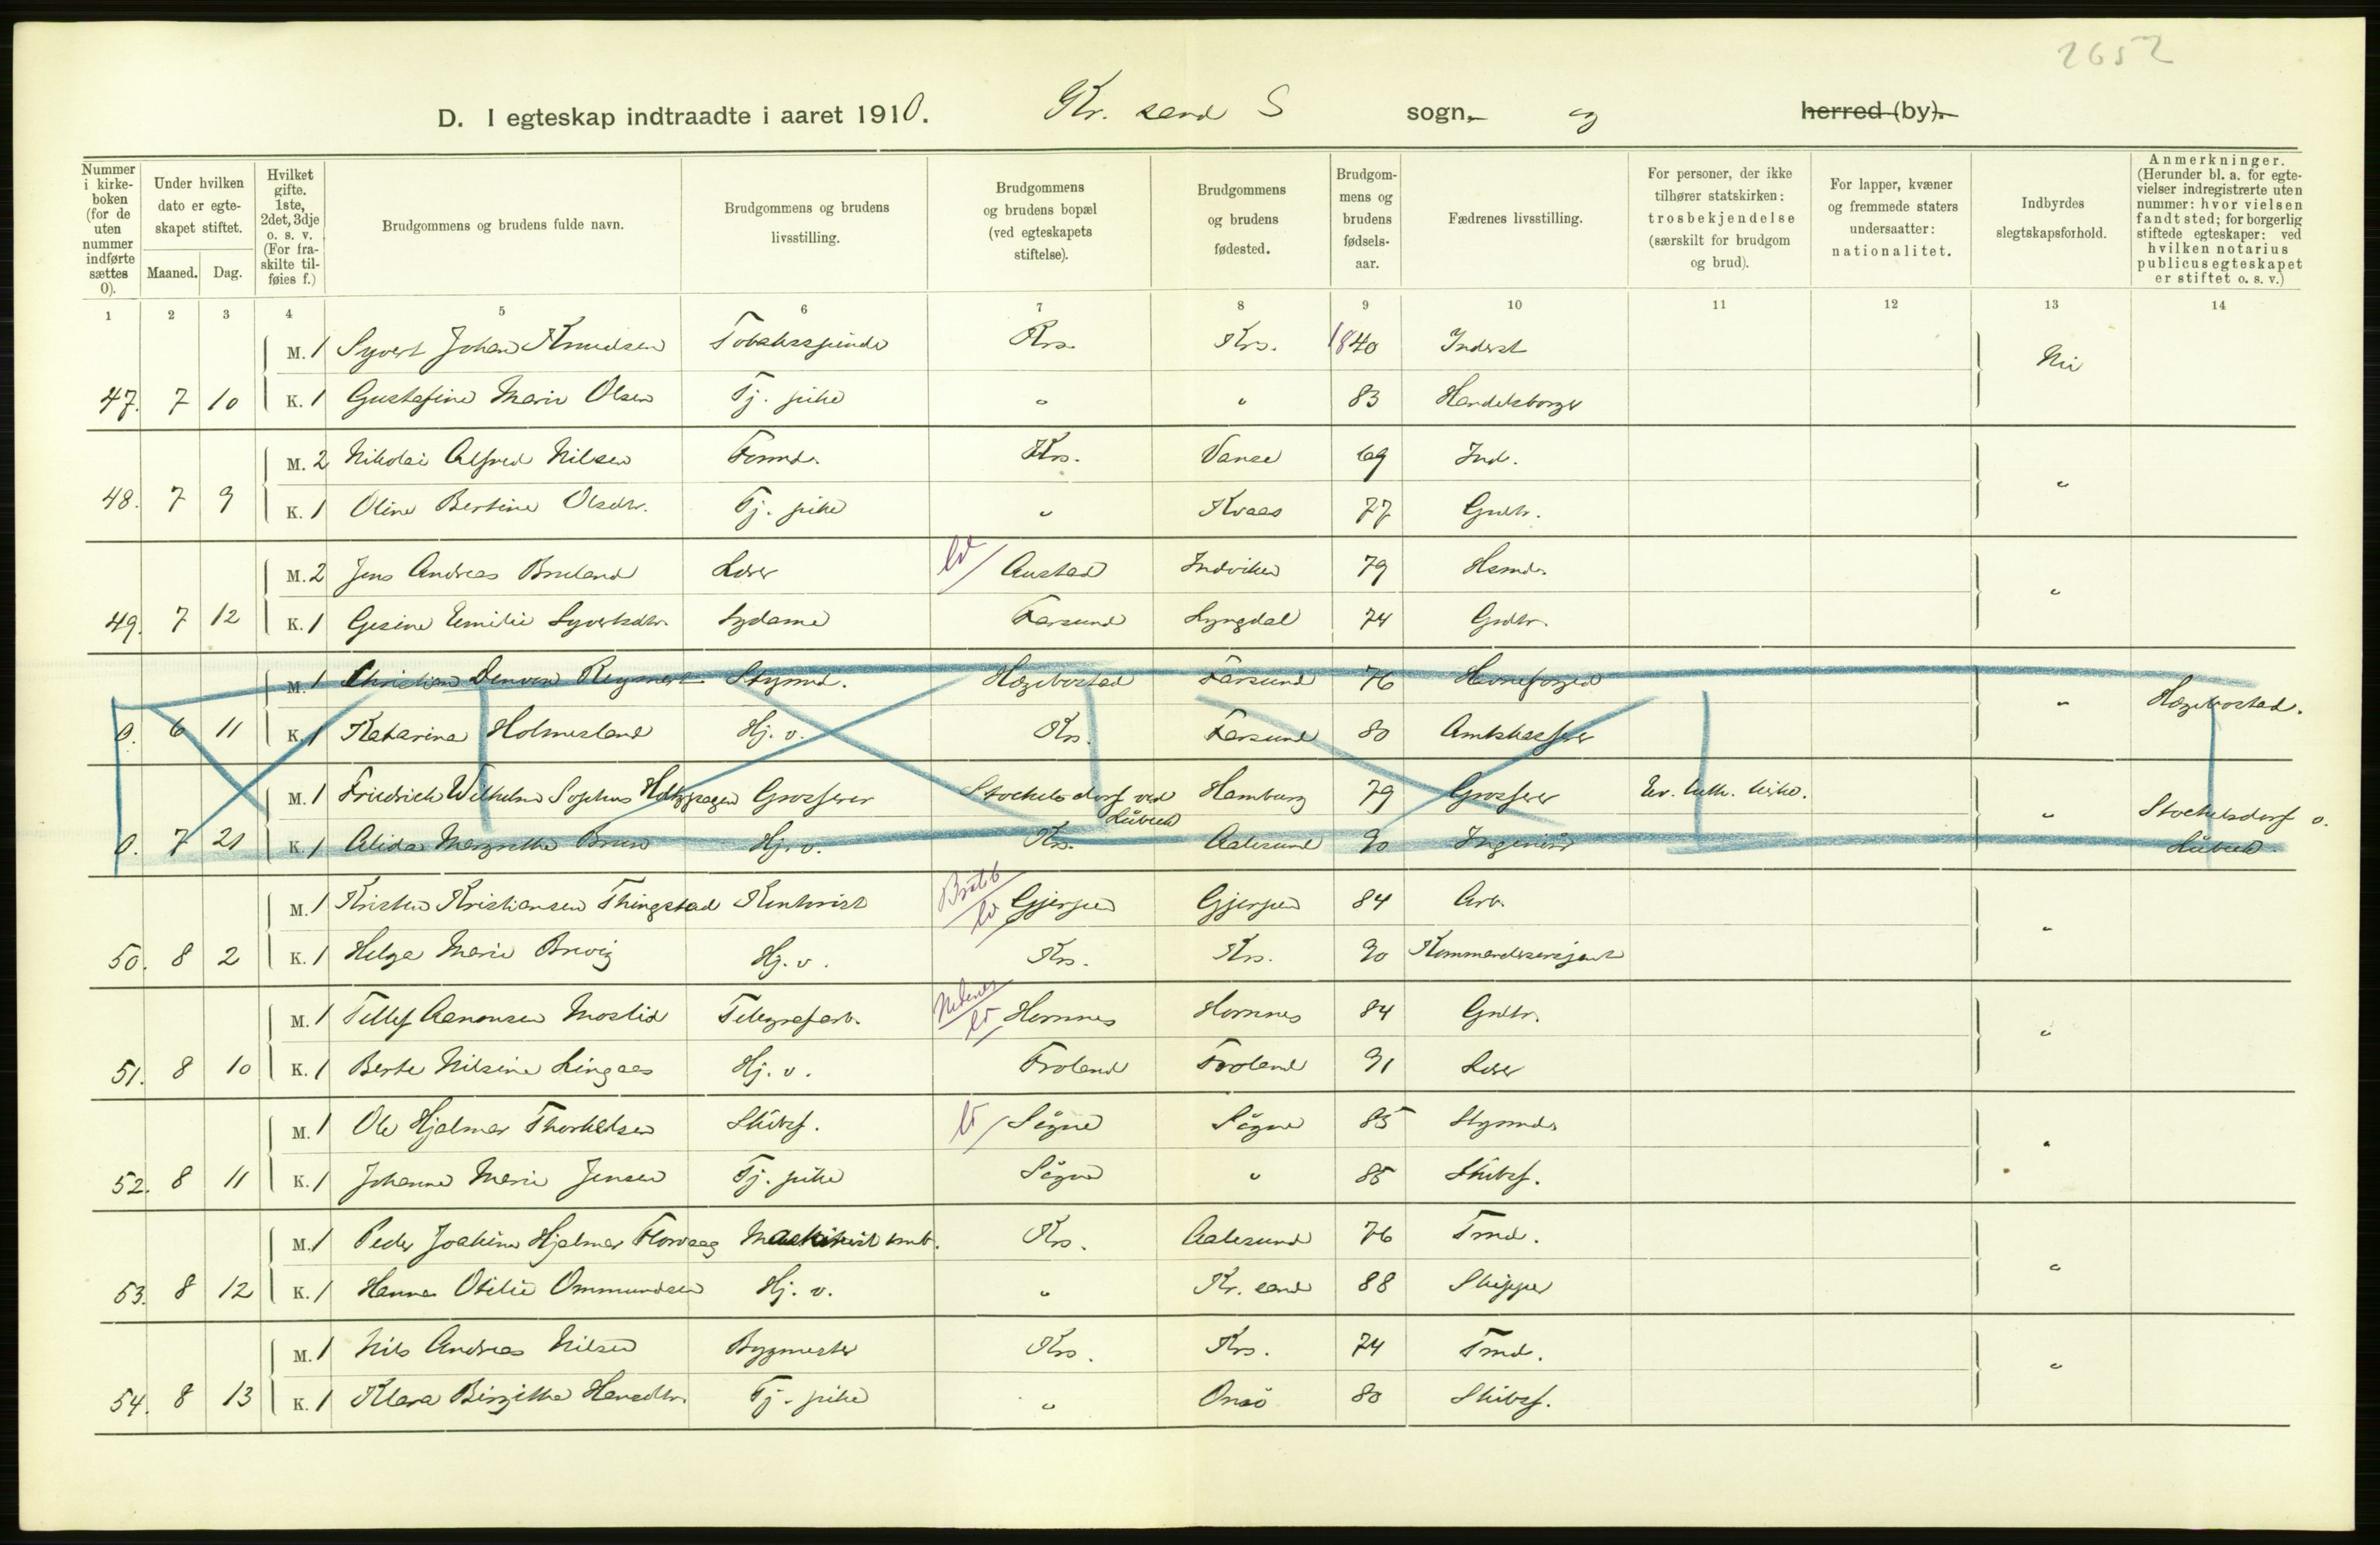 2652
D. I egteskap indtraadte i aaret 1910. Kr. sand S sogn. og herred (by).
Nummer i kirkeboken (for de uten nummer indførte sættes 0).
Under hvilken dato er egteskapet stiftet.
Maaned. Dag.
Hvilket gifte. 1ste, 2det, 3dje o. s. v. (For fraskilte tilføies f.)
Brudgommens og brudens fulde navn.
Brudgommens og brudens livsstilling.
Brudgommens og brudens bopæl (ved egteskapets stiftelse).
Brudgommens og brudens fødested.
Brudgommens og brudens fødselsaar.
Fædrenes livsstilling.
For personer, der ikke tilhører statskirken: trosbekjendelse (særskilt for brudgom og brud).
For lapper, kvæner og fremmede staters undersaatter: nationalitet.
Indbyrdes slegtskapsforhold.
Anmerkninger. (Herunder bl. a. for egtevielser indregistrerte uten nummer: hvor vielsen fandt sted; for borgerlig stiftede egteskaper: ved hvilken notarius publicus egteskapet er stiftet o. s. v.)
1 2 3 4 5 6 7 8 9 10 11 12 13 14
M. 1 Syvert Johan Knudsen Krs. Krs. 1840 Inderst
47. 7 10 K. 1 Gustafine Marie Olsen Tj. pike " " 83 Handelsborger
M. 2 Nikolai Alfred Nilsen Krs. Vanse 69 Ind.
48. 7 9 K. 1 Oline Bertine Olsdtr. Tj. pike " Kvaas 77 Grdbr. "
M. 2 Jens Andreas Bruland Lærer Austad Indviken 79 Hsmd.
49. 7 12 K. 1 Gesine Emilie Syvertsdtr. Sydame Farsund Lyngdal 74 Grdbr. "
M. 1 Christian Reymert Stymd. Hægebostad Farsund 76 Havnefoged
0. 6 11 K. 1 Katarina Holmesland Hj. v. Krs. Farsund 80 Amtskasserer " Hægebostad.
M. 1 Friedrich Wilhelm Sophus Grosserer Stockelsdorf ved Lübeck Hamburg 79 Grosserer Ev. luth. kirke.
0. 7 21 K. 1 Alida Margrethe Brun Hj. v. Krs. Aalesund 90 Ingeniør " Stockelsdorf v. Lübeck.
M. 1 Kristen Kristiansen Thingstad Kontorist Gjerpen Gjerpen 84 Arb.
50. 8 2 K. 1 Helga Marie Brevig Hj. v. Krs. Krs. 90 Kommandersersjant "
M. 1 Tellef Aanonsen Moslid Telegrafarb. Nedenes Hornnes Hornnes 84 Grdbr.
51. 8 10 K. 1 Berte Nilsine Lingaas Hj. v. Froland Froland 91 Lærer "
M. 1 Ole Hjalmar Thorkelsen Skibsf. Søgne Søgne 85 Stymd.
52. 8 11 K. 1 Johanne Marie Jensen Tj. pike Søgne " 85 Skibsf. "
M. 1 Peder Joakim Hjalmar Florvaag Krs. Aalesund 76 Tmd.
53. 8 12 K. 1 Hanna Otilie Ommundsen Hj. v. " Kr. sand 88 Skipper "
M. 1 Nils Andreas Nilsen Bygmester Krs. Krs. 74 Tmd.
54. 8 13 K. 1 Klara Birgitte Hansdtr. Tj. pike " Onsø 80 Skibsf. "